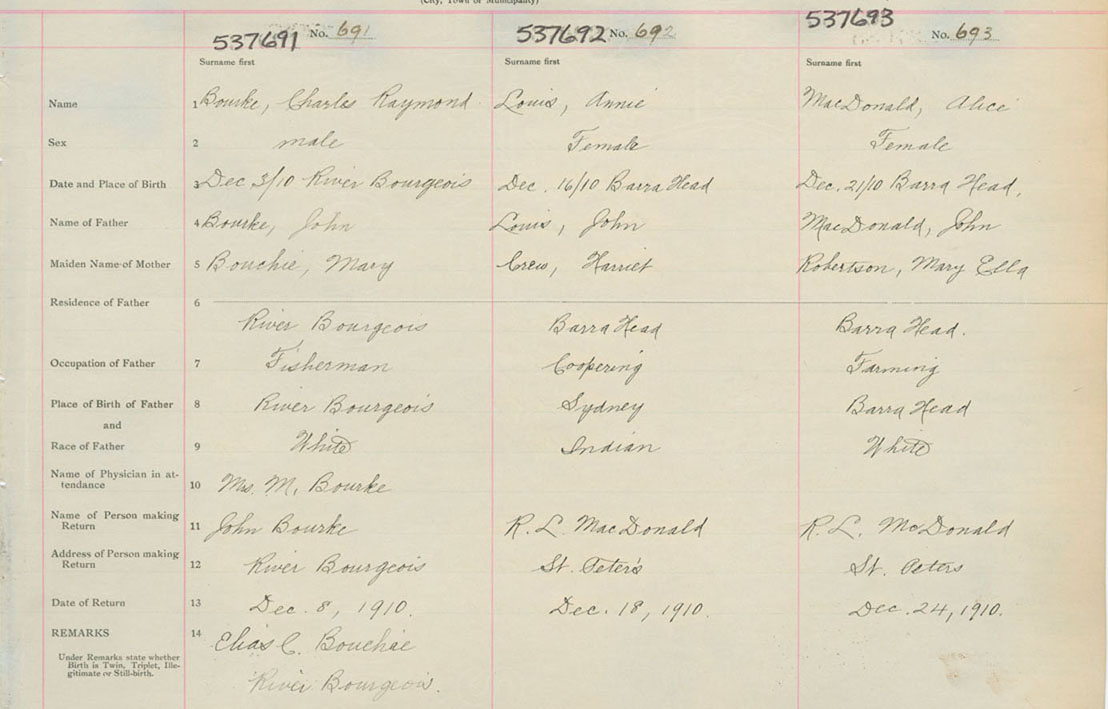 (City, Town or Municipality)
537691 No. 691 537692 No. 692 537693 No. 693
Surname first Surname first Surname first
Name 1 Bourke, Charles Raymond Louis, Annie MacDonald, Alice
Sex 2 male Female Female
Date and Place of Birth 3 Dec 3/10 River Bourgeois Dec. 16/10 Barra Head Dec. 21/10 Barra Head,
Name of Father 4 Bourke, John Louis, John MacDonald, John
Maiden Name of Mother 5 Bouchie, Mary Crew, Harriet Robertson, Mary Ella
Residence of Father 6
River Bourgeois Barra Head Barra Head.
Occupation of Father 7 Fisherman Coopering Farming
Place of Birth of Father 8 River Bourgeois Sydney Barra Head
and
Race of Father 9 White Indian White
Name of Physician in at-
tendance 10 Mrs. M. Bourke
Name of Person making
Return 11 John Bourke R. L. MacDonald R. L. McDonald
Address of Person making
Return 12 River Bourgeois St. Peter's St. Peters
Date of Return 13 Dec. 8, 1910. Dec. 18, 1910. Dec. 24, 1910.
REMARKS 14 Elias C. Bouchie
Under Remarks state whether
Birth is Twin, Triplet, Ille-
gitimate or Still-birth.
River Bourgeois.